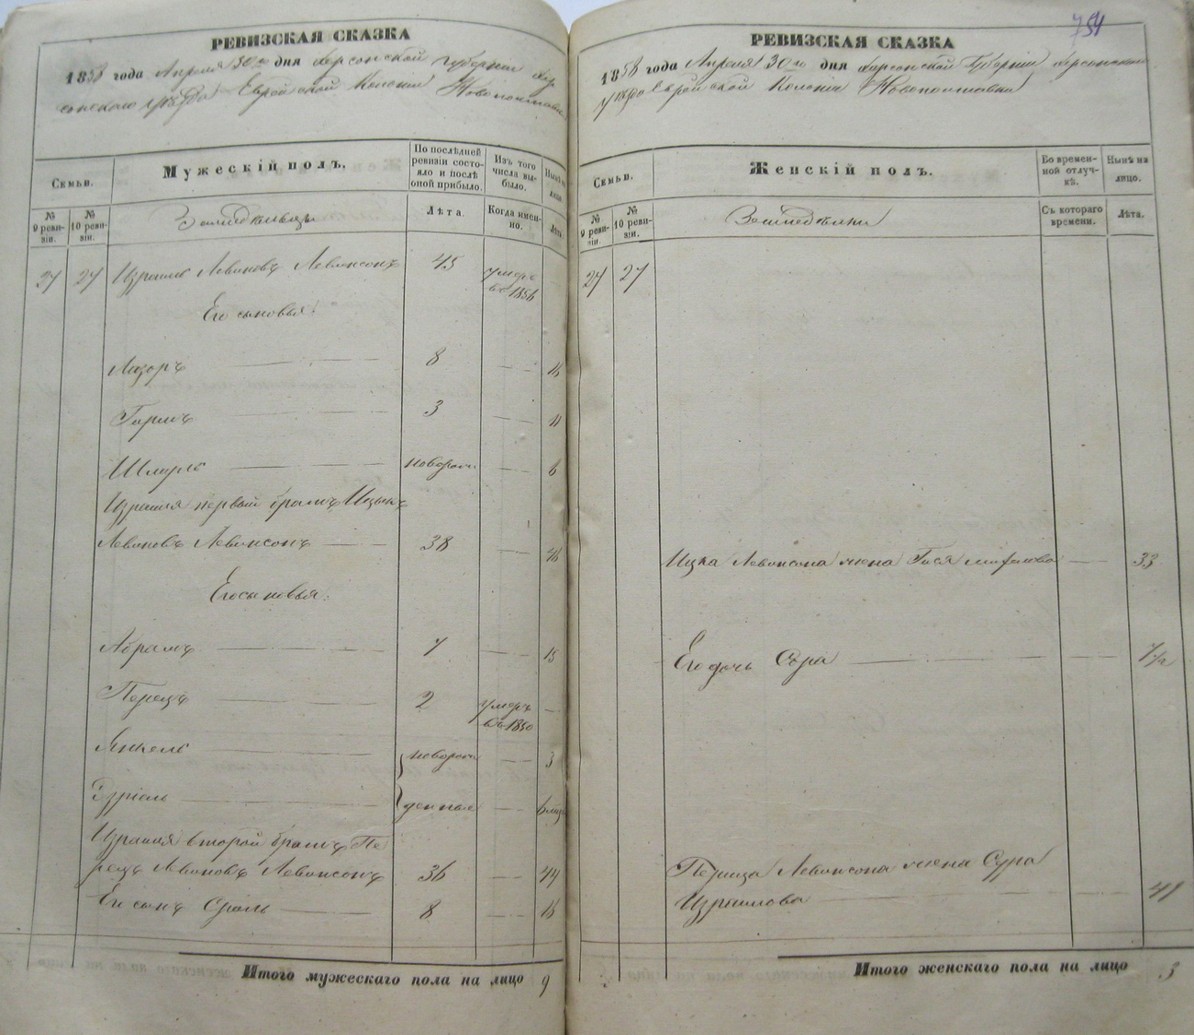 РЕВИЗСКАЯ СКАЗКА
1858 года Апреля 30го дня Херсонской Губернии Хер
сонскаго уѣзда Еврейской Колоніи Новополтавки
Семьи.
№ 9 ревизіи.
№ 10 ревизіи.
Мужескій полъ.
Земледѣльцы
По послѣдней ревизіи состояло и послѣ оной прибыло.
Лѣта.
Изъ того числа выбыло.
Когда именно.
Нынѣ на лицо.
Лѣта
27 27 Израиль Левиковъ Левинсонъ 45 умеръ въ 1856
Его сыновья:
Лазоръ 8 — 16
3 — 11
Шмуль новорож. — 6
Израиля первый братъ Ицыкъ
Левиковъ Левинсонъ 38 — 46
Его сыновья:
Абрамъ 7 — 15
Перецъ 2 умеръ въ 1850 —
Янкель новорож — 3
денные — 6
Израиля второй братъ Пе
рецъ Левиковъ Левинсонъ 36 — 44
Его сынъ Сроль 8 — 16
Итого мужескаго пола на лицо 9
754
РЕВИЗСКАЯ СКАЗКА
1858 года Апреля 30го дня Херсонской Губерніи Херсонскаго
уѣзда Еврейской Колоніи Новополтавки
Семьи.
№ 9 ревизіи.
№ 10 ревизіи.
Женскій полъ.
Во временной отлучкѣ.
Съ котораго времени.
Нынѣ на лицо.
Лѣта.
27 27
Ицка Левинсона жена Гися — 33
Его дочь Сура — 1/2
Переца Левинсона жена Сура
Израилова — 41
Итого женскаго пола на лицо 3